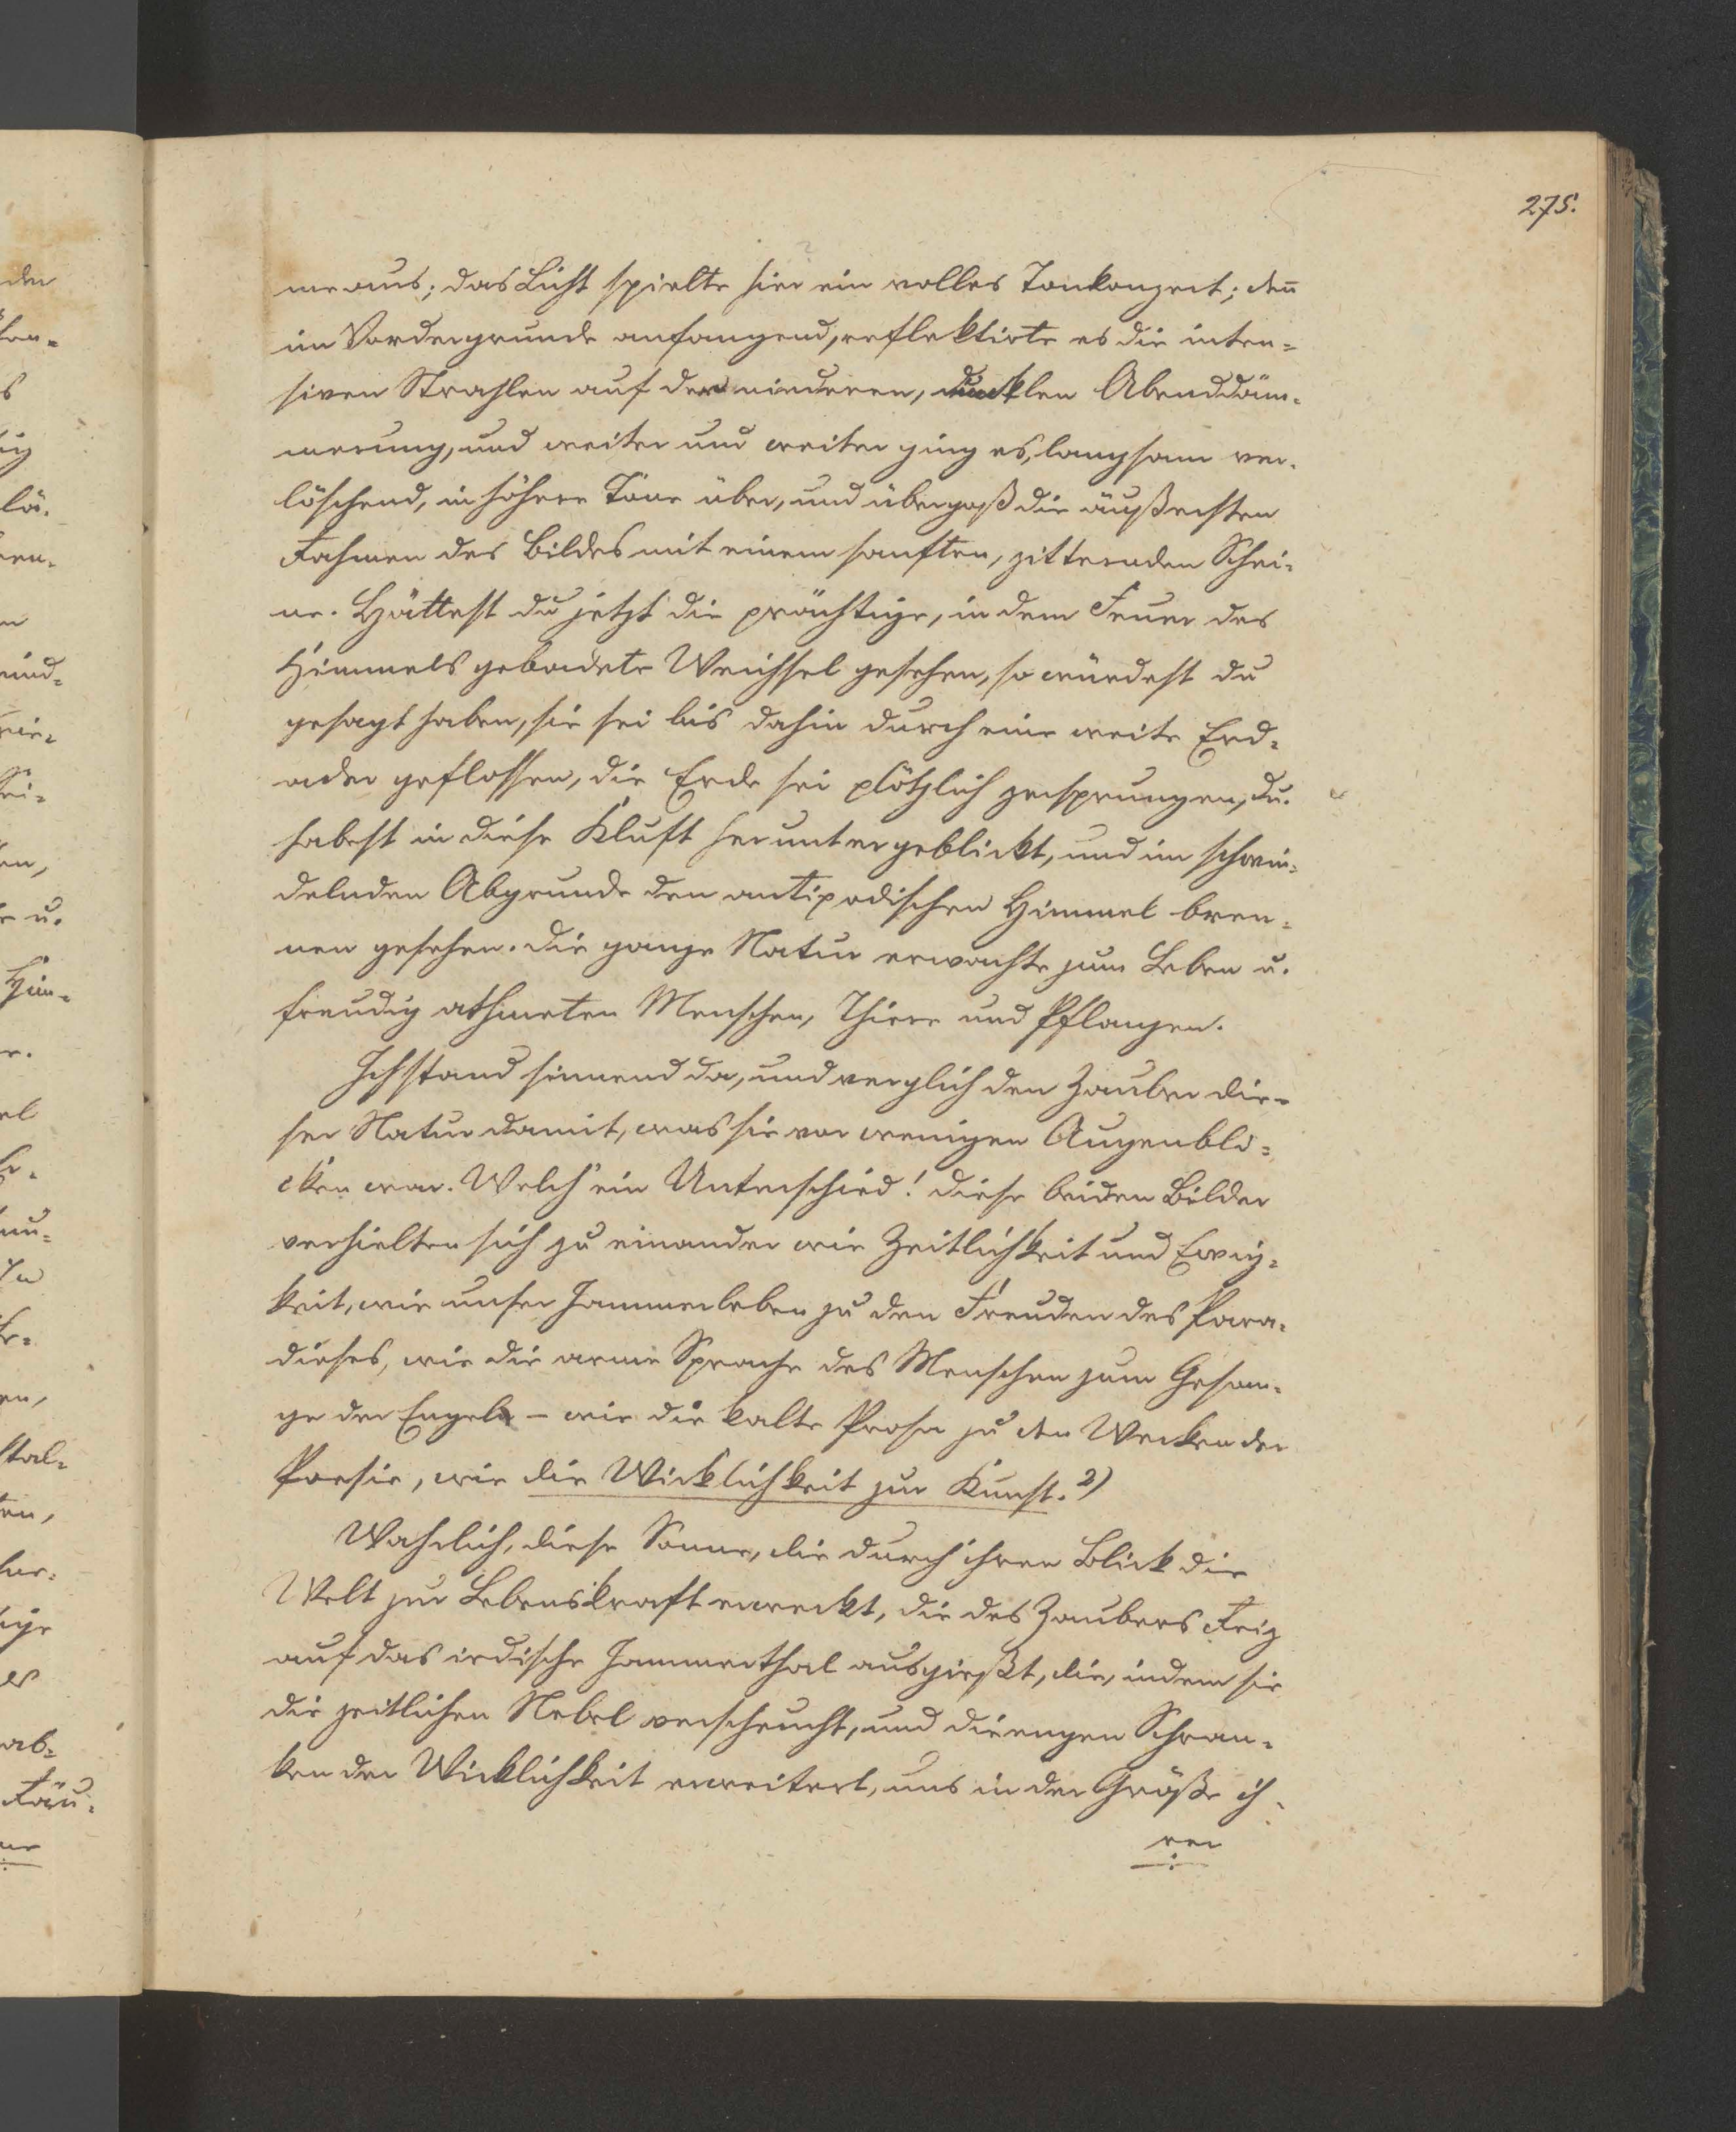 275.
me aus; das Licht spielte hier ein volles Tonkonzert; deñ
im Vordergrunde anfangend, reflektirte es die inten=
siven Strahlen auf der niederen, dunklen Abenddäm=
merung, und weiter und weiter ging es, langsam ver=
löschend, in höhere Töne über, und übergoß die äußersten
Rahmen des Bildes mit einem sanften, zitternden Schei=
ne. Hättest du jetzt die prächtige, in dem Feuer des
Himmels gebadete Weichsel gesehen, so würdest du
gesagt haben, sie sei bis dahin durch eine weite Erd=
ader geflossen, die Erde sei plötzlich zersprungen, du
habest in diese Kluft heruntergeblickt, und im schwin=
delnden Abgrunde den antipodischen Himmel bren=
nen gesehen. Die ganze Natur erwachte zum Leben u.
freudig athmeten Menschen, Thiere und Pflanzen.
Ich stand sinnend da, und verglich den Zauber die=
ser Natur damit, was sie vor wenigen Augenbli=
cken war. Welch' ein Unterschied! Diese beiden Bilder
verhielten sich zu einander wie Zeitlichkeit und Ewig=
keit, wie unser Jammerleben zu den Freuden des Para=
dieses, wie die arme Sprache des Menschen zum Gesan=
ge der Engel – wie die kalte Prosa zu den Werken der
Poesie, wie die Wirklichkeit zur Kunst. 2)
Wahrlich, diese Sonne, die durch ihren Blick die
Welt zur Lebenskraft erweckt, die des Zaubers Reiz
auf das irdische Jammerthal ausgießt, die, indem sie
die zeitlichen Nebel verscheucht, und die engen Schran=
ken der Wirklichkeit erweitert, uns in der Größe ih=
rer